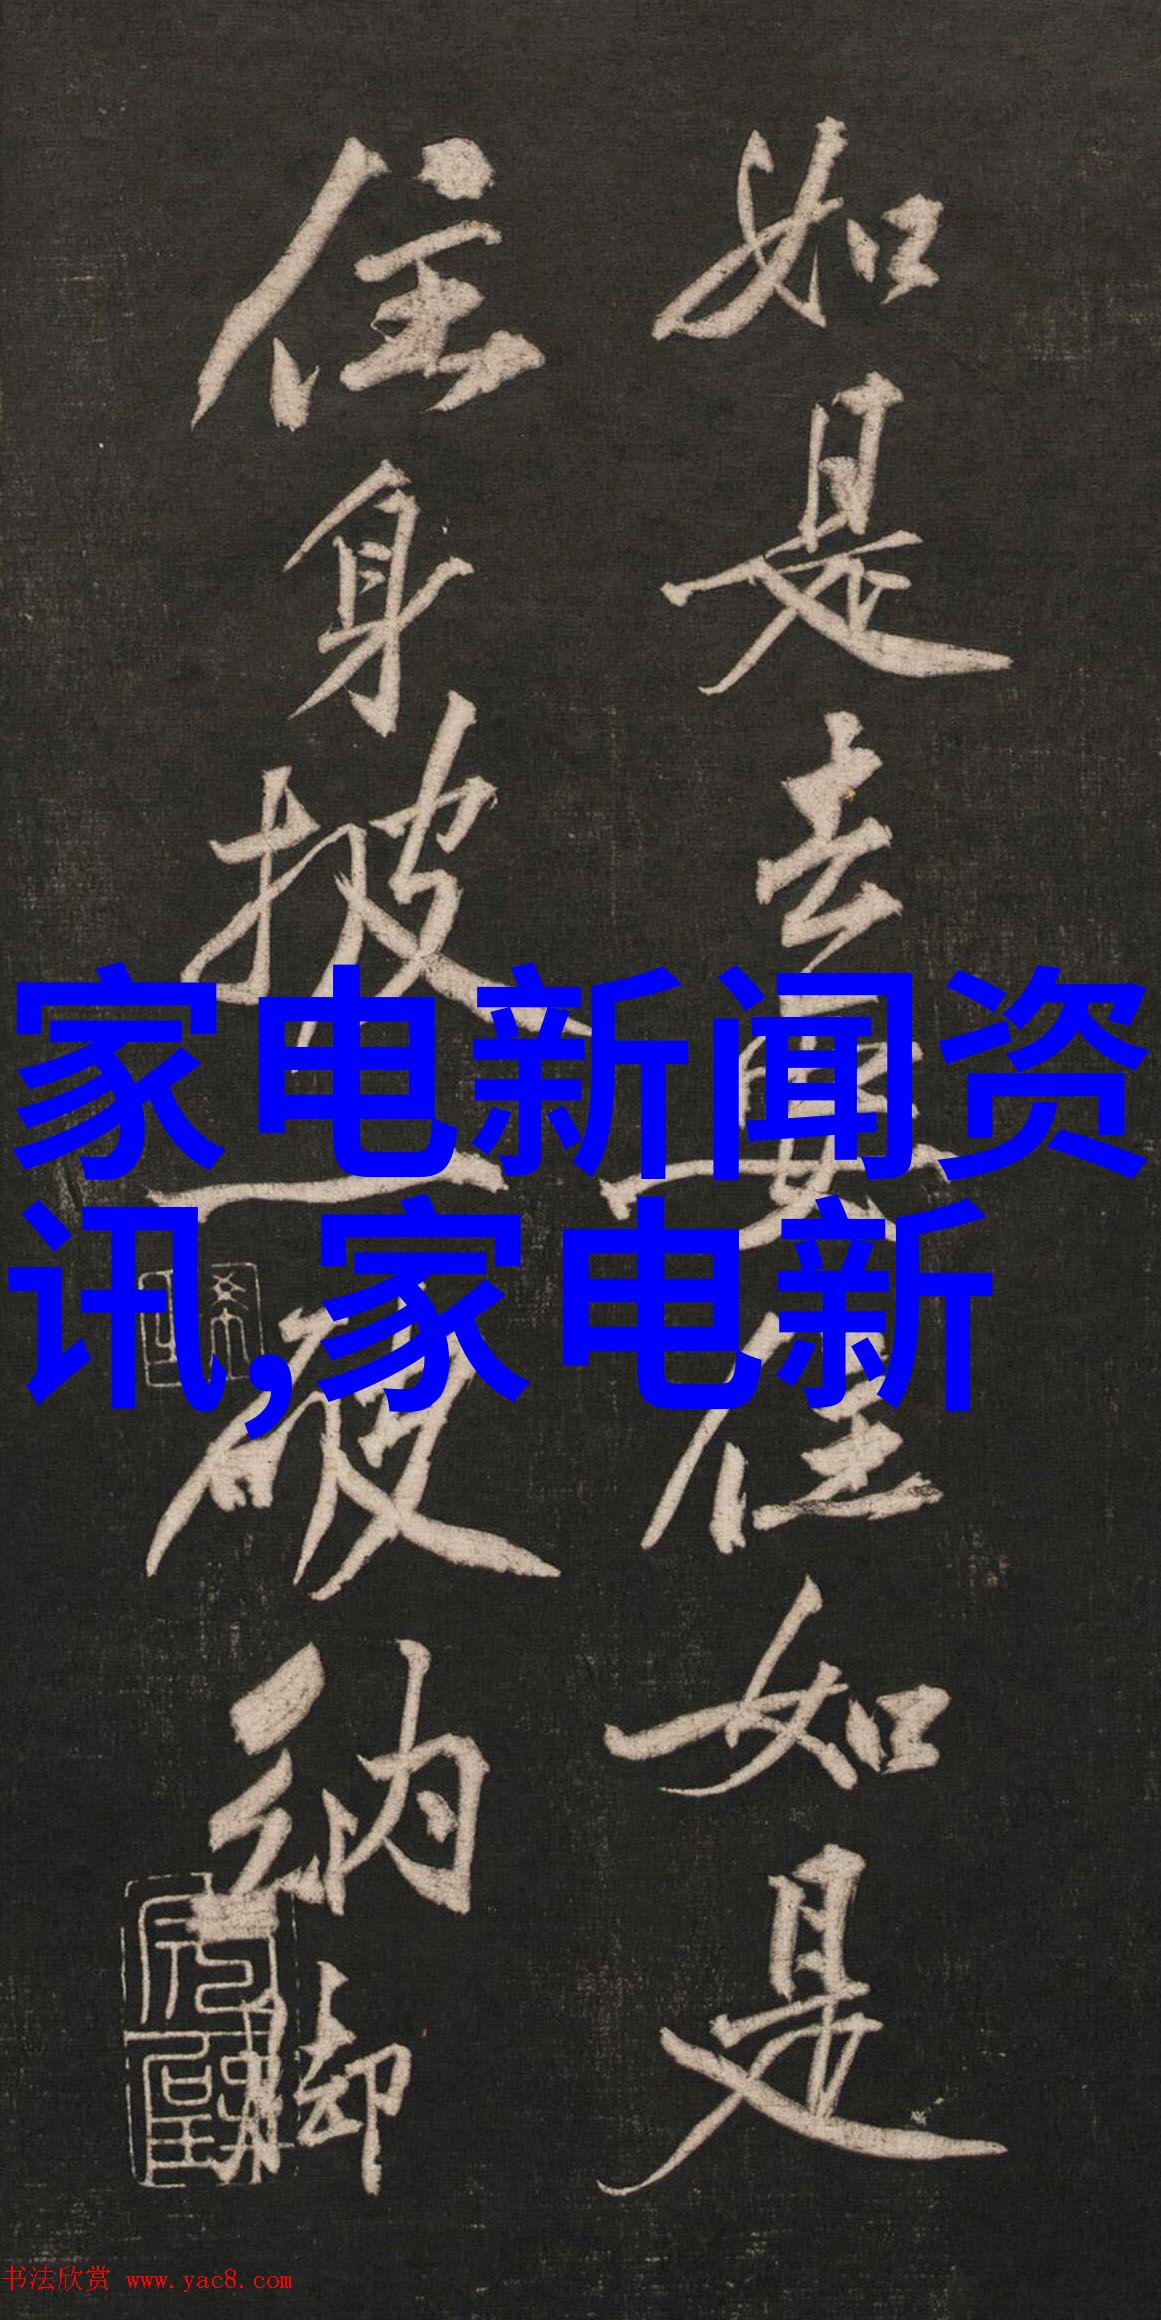 如是去要住如是
住身披一破衲脚
家电新闻资
讯,家电新
书法欣赏 www.yac8.com